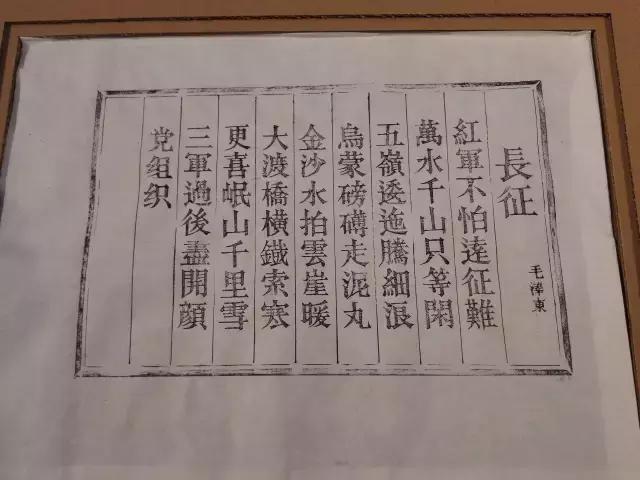 長征
毛澤東
紅軍不怕遠征難
萬水千山只等閑
五嶺逶迤騰細浪
烏蒙磅礴走泥丸
金沙水拍雲崖暖
大渡橋橫鐵索寒
更喜岷山千里雪
三軍過後盡開顔
党组织